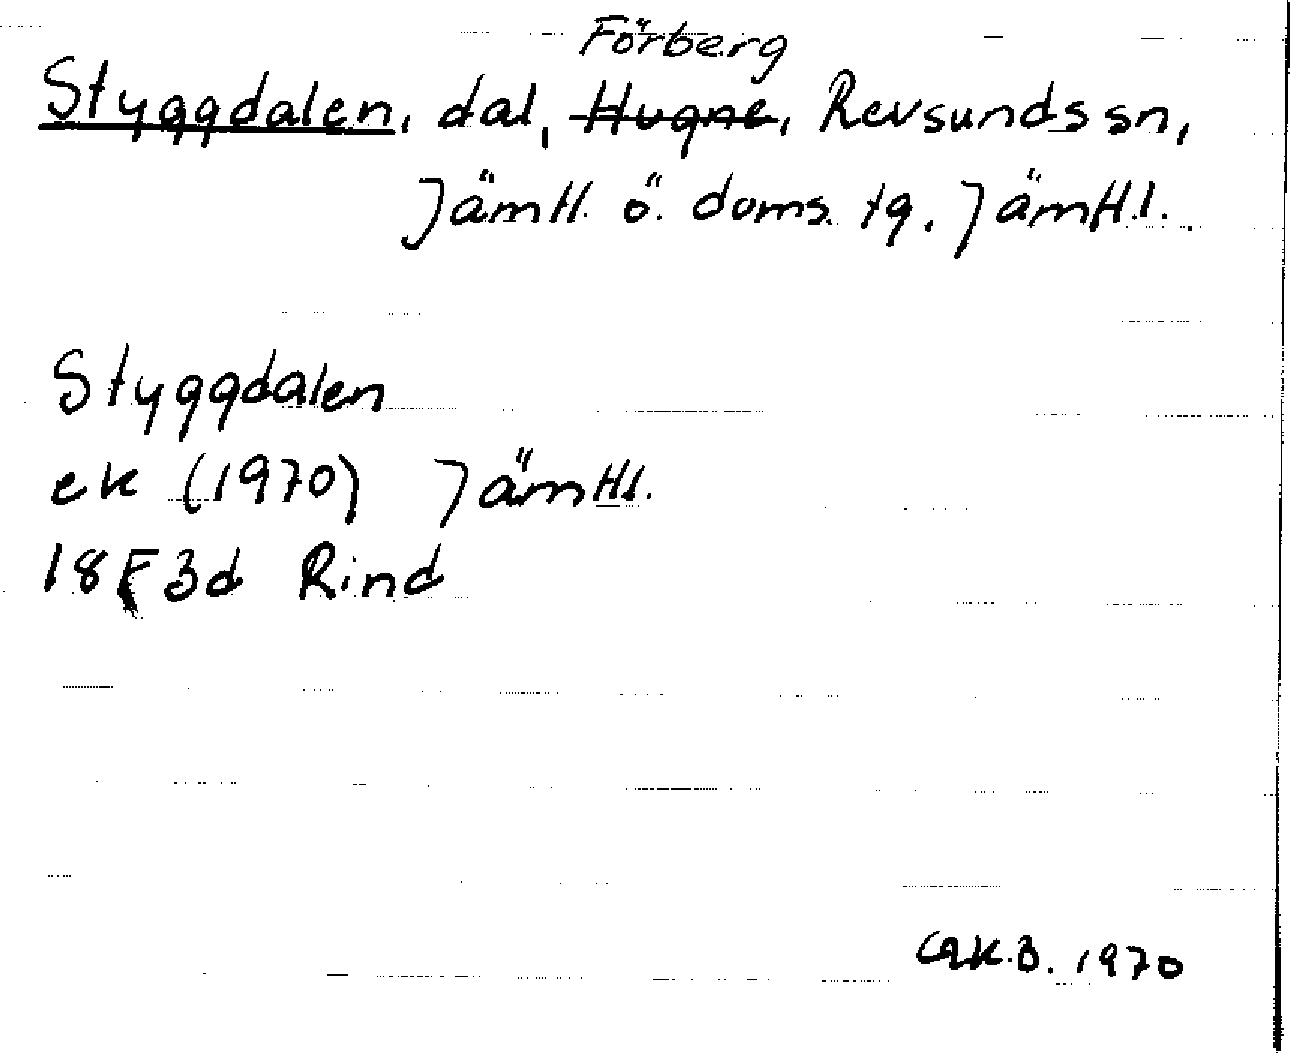 Förberg
Styggdalen, dal, Hugne, Revsunds sn,
Jämtl. ö. doms. tg. Jämtl.l.
Styggdalen
ek (1970) Jämtl.l.
18F3d Rind
G.K.B. 1970